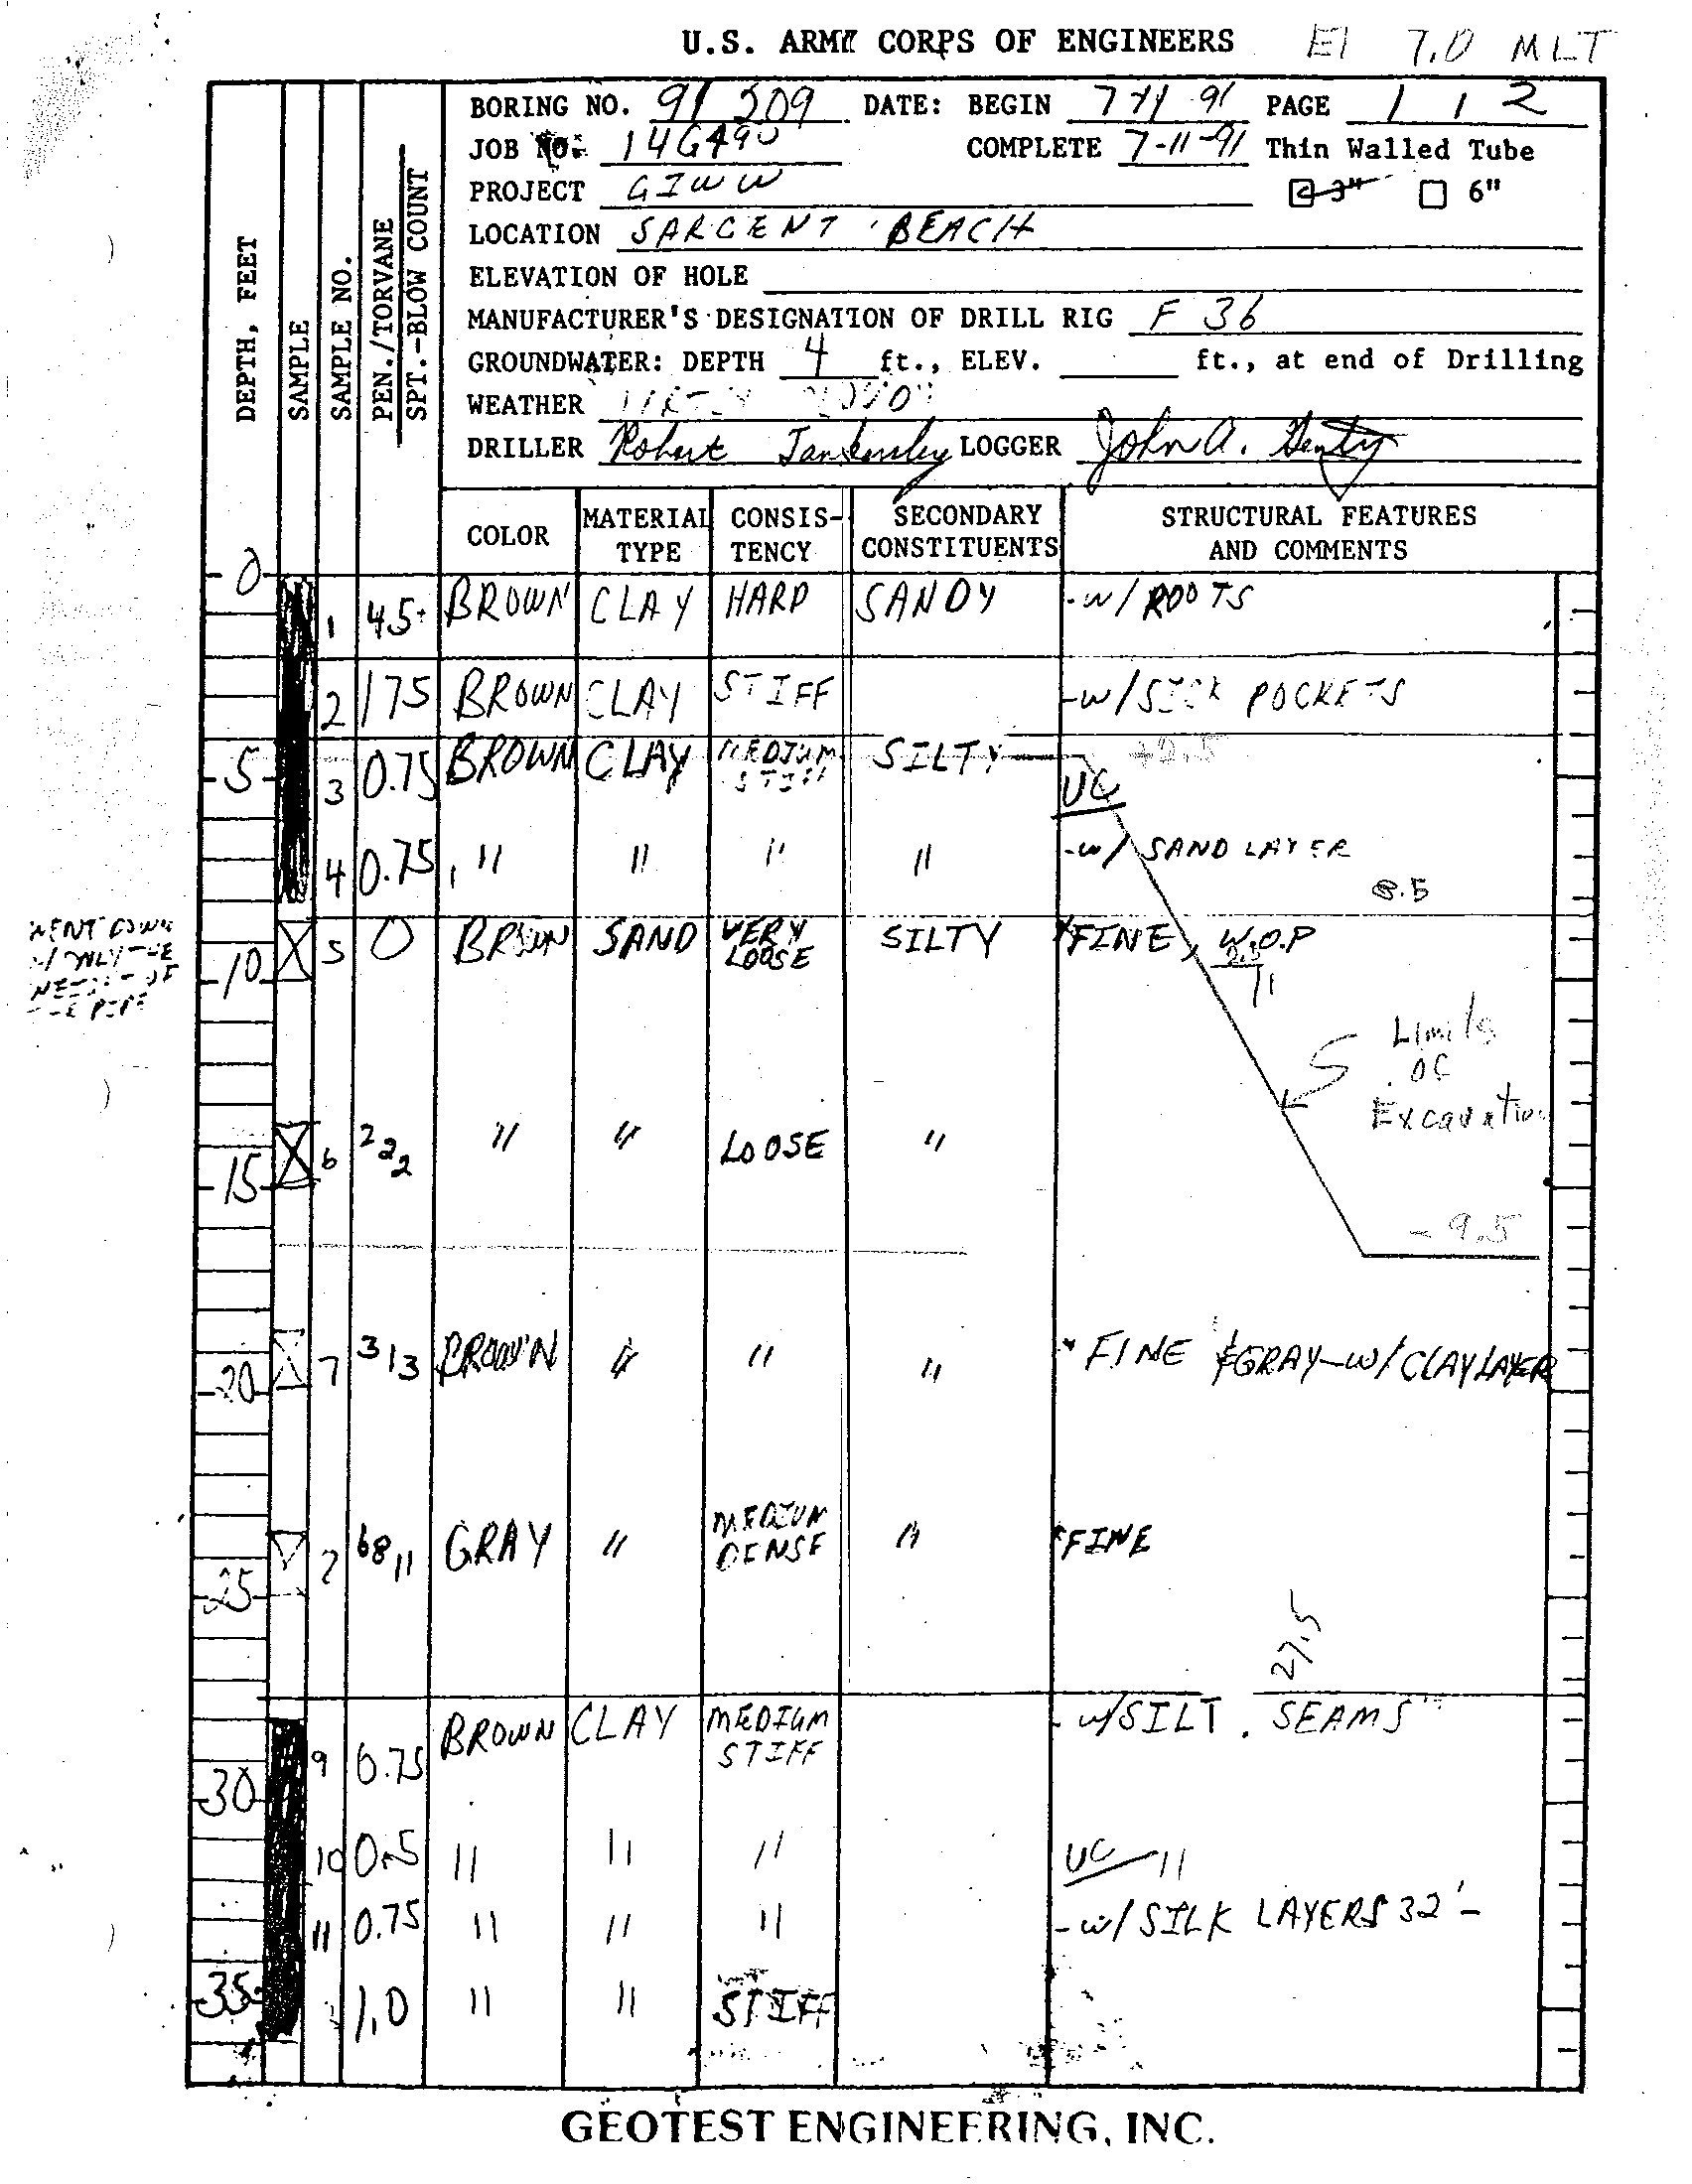 U.S. ARMY CORPS OF ENGINEERS El 7.0 MLT
BORING NO. 91 309 DATE: BEGIN 7 11 91 PAGE 1 1 2
JOB NO: COMPLETE 7-11-91 Thin Walled Tube
PROJECT GIWW 3" 6"
LOCATION SARGENT BEACH
ELEVATION OF HOLE
MANUFACTURER'S DESIGNATION OF DRILL RIG F 36
GROUNDWATER: DEPTH 4 ft., ELEV. ft., at end of Drilling
WEATHER
DRILLER Robert LOGGER John A.
DEPTH, FEET
SAMPLE
SAMPLE NO.
PEN./TORVANE
SPT.-BLOW COUNT
COLOR MATERIAL TYPE CONSIS-TENCY SECONDARY CONSTITUENTS STRUCTURAL FEATURES AND COMMENTS
0
1 4.5+ BROWN CLAY HARD SANDY -w/ ROOTS
2 1.75 BROWN CLAY STIFF -w/SICK POCKETS
5 3 0.75 BROWN CLAY MEDIUM STIFF SILTY +2.5
UC
4 0.75 " " " " -w/ SAND LAYER
8.5
WENT DOWN
W/ ONLY THE
OF
THE PIPE
10 5 0 BROWN SAND VERY LOOSE SILTY *FINE, W.O.P
Limits
of
Excavation
15 6 2 2 2 " " LOOSE "
-9.5
20 7 3 1 3 BROWN " " " * FINE &GRAY-W/CLAY LAYER
25 7 6 8 11 GRAY " MEDIUM DENSE " *FINE
27.5
30 9 0.75 BROWN CLAY MEDIUM STIFF - w/SILT SEAMS
10 0.5 " " " UC "
11 0.75 " " " -w/ SILK LAYERS 32'-
35 1.0 " " STIFF
GEOTEST ENGINEERING, INC.